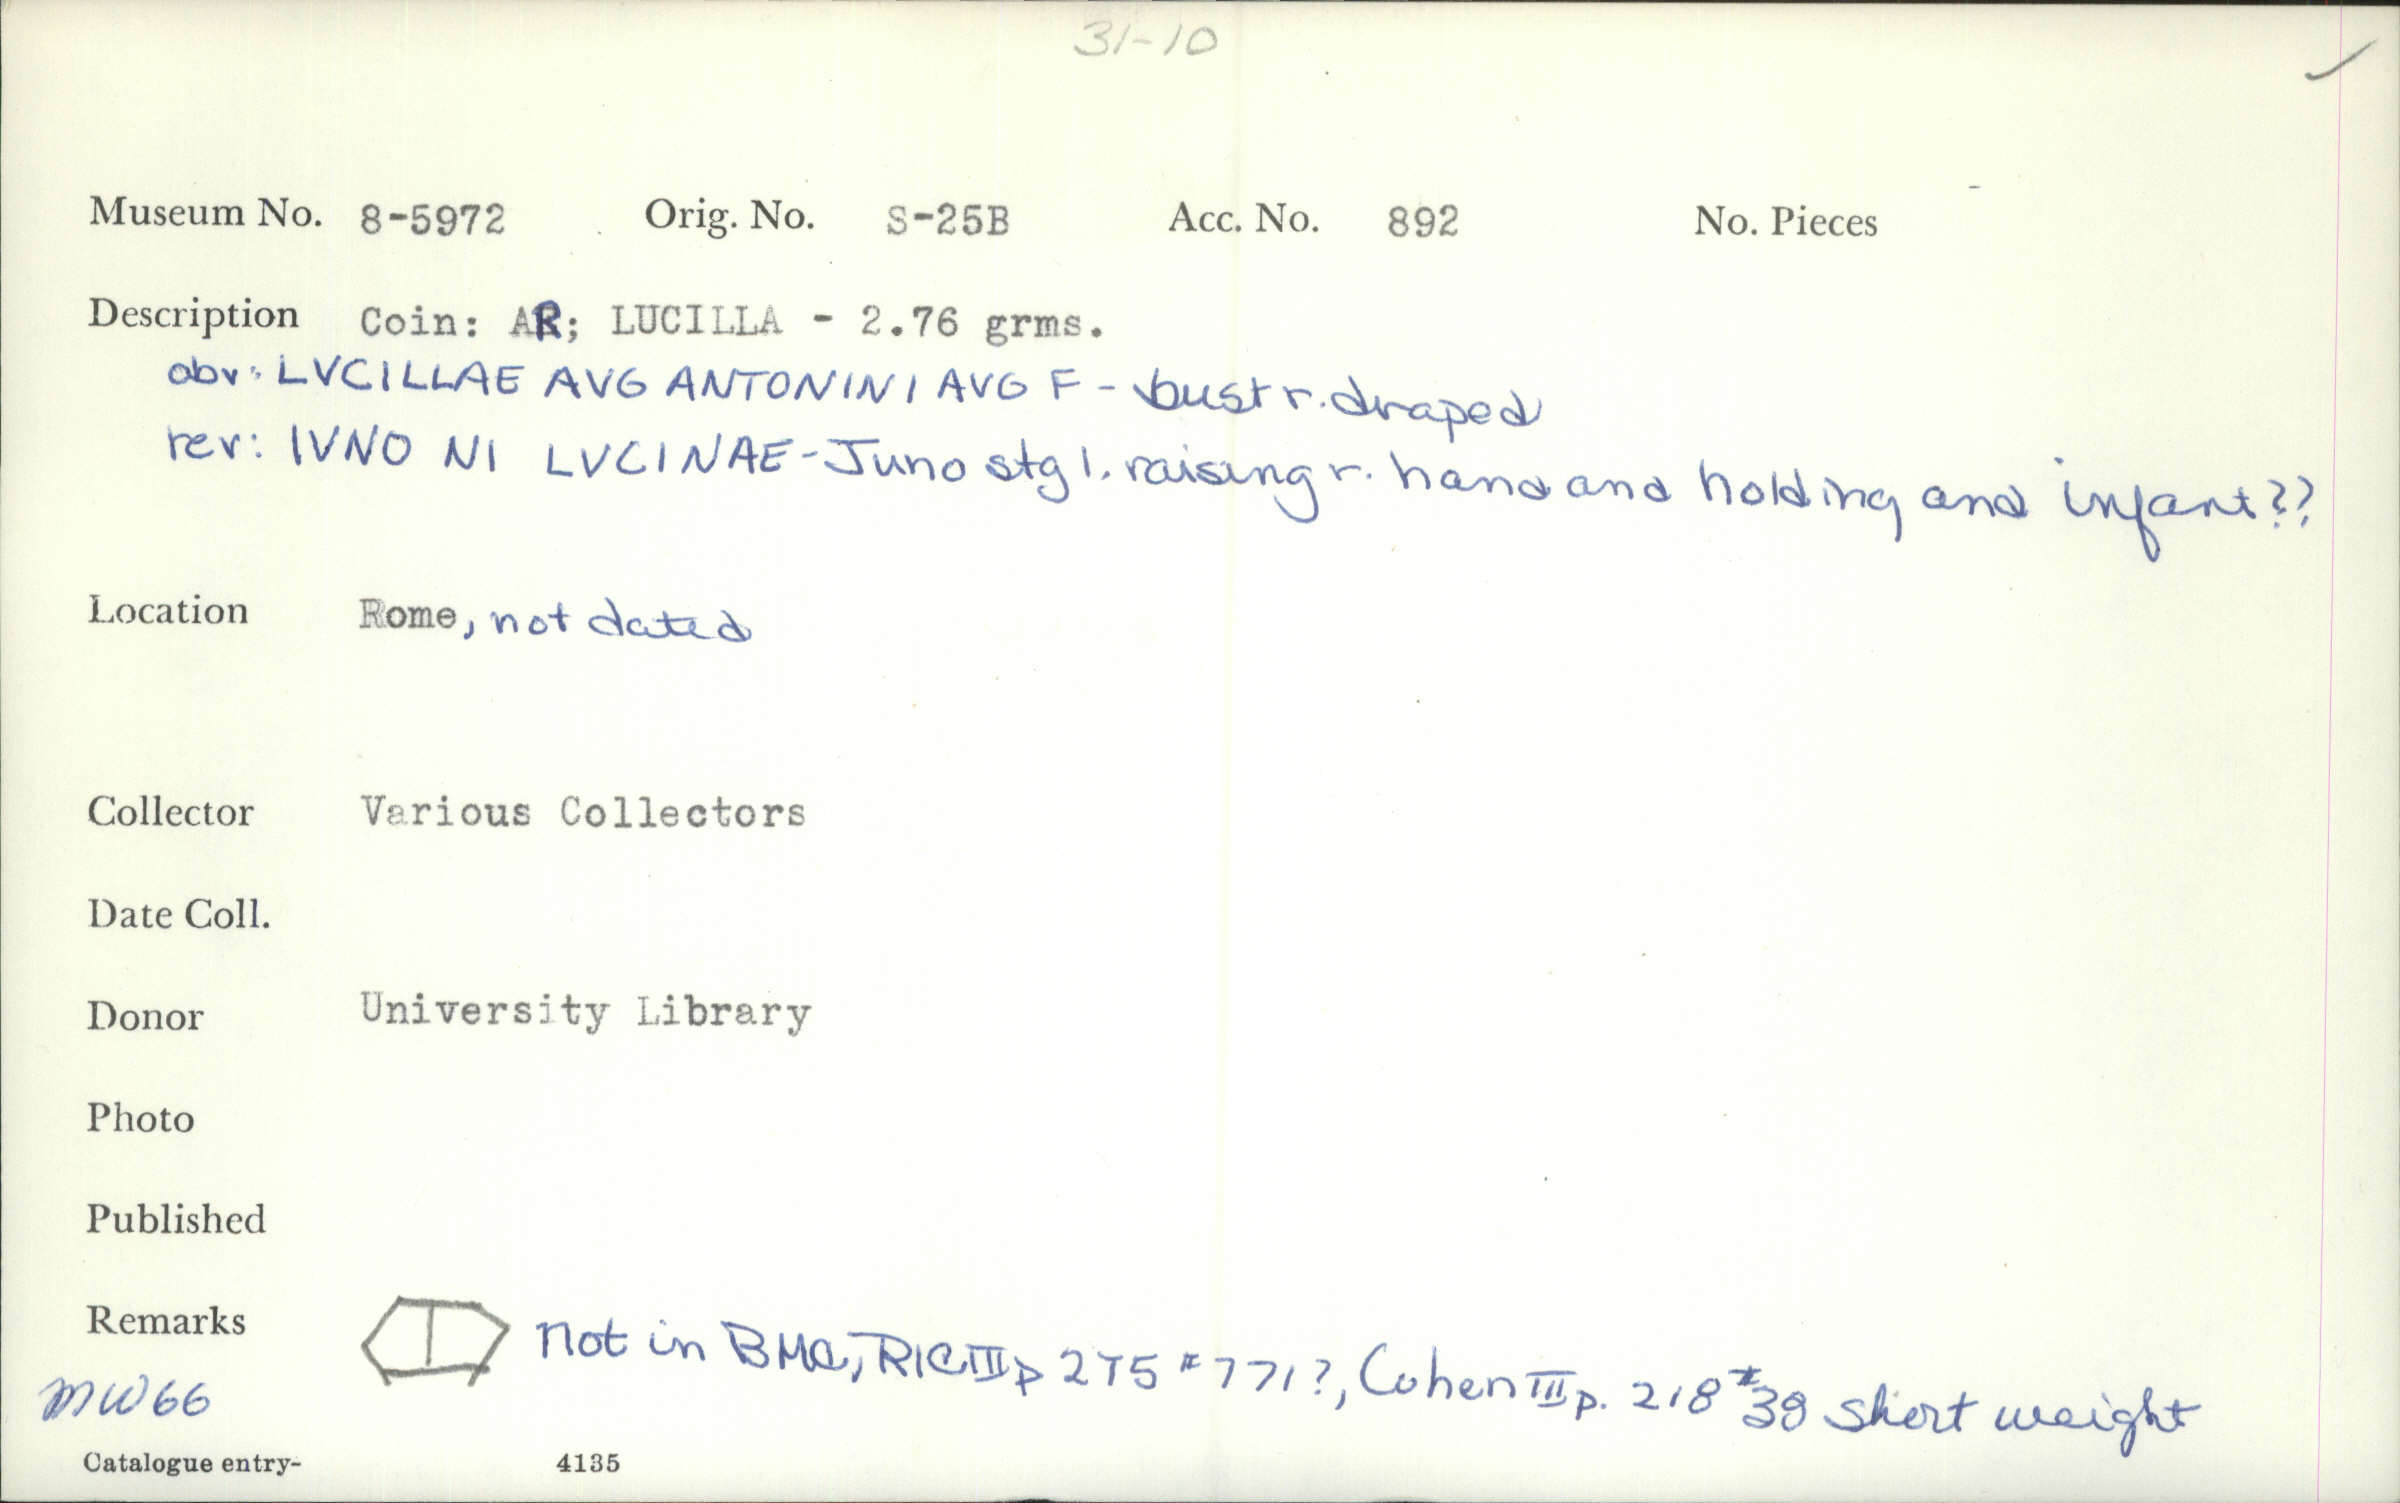 31-10
Museum No. 8-5972 Orig. No. S-25B Acc. No. 892 No. Pieces
Description Coin: AR; LUCILLA - 2.76 grms.
obv: LVCILLAE AVG ANTONINI AVG F - bust r. draped
rev: IVNO NI LVCINAE - Juno stg l. raising r. hand and holding and infant??
Location Rome, not dated
Collector Various Collectors
Date Coll.
Donor University Library
Photo
Published
Remarks Not in BMC, RIC III p 275 #771?, Cohen III p. 218 #38 short weight
MW66
Catalogue entry- 4135